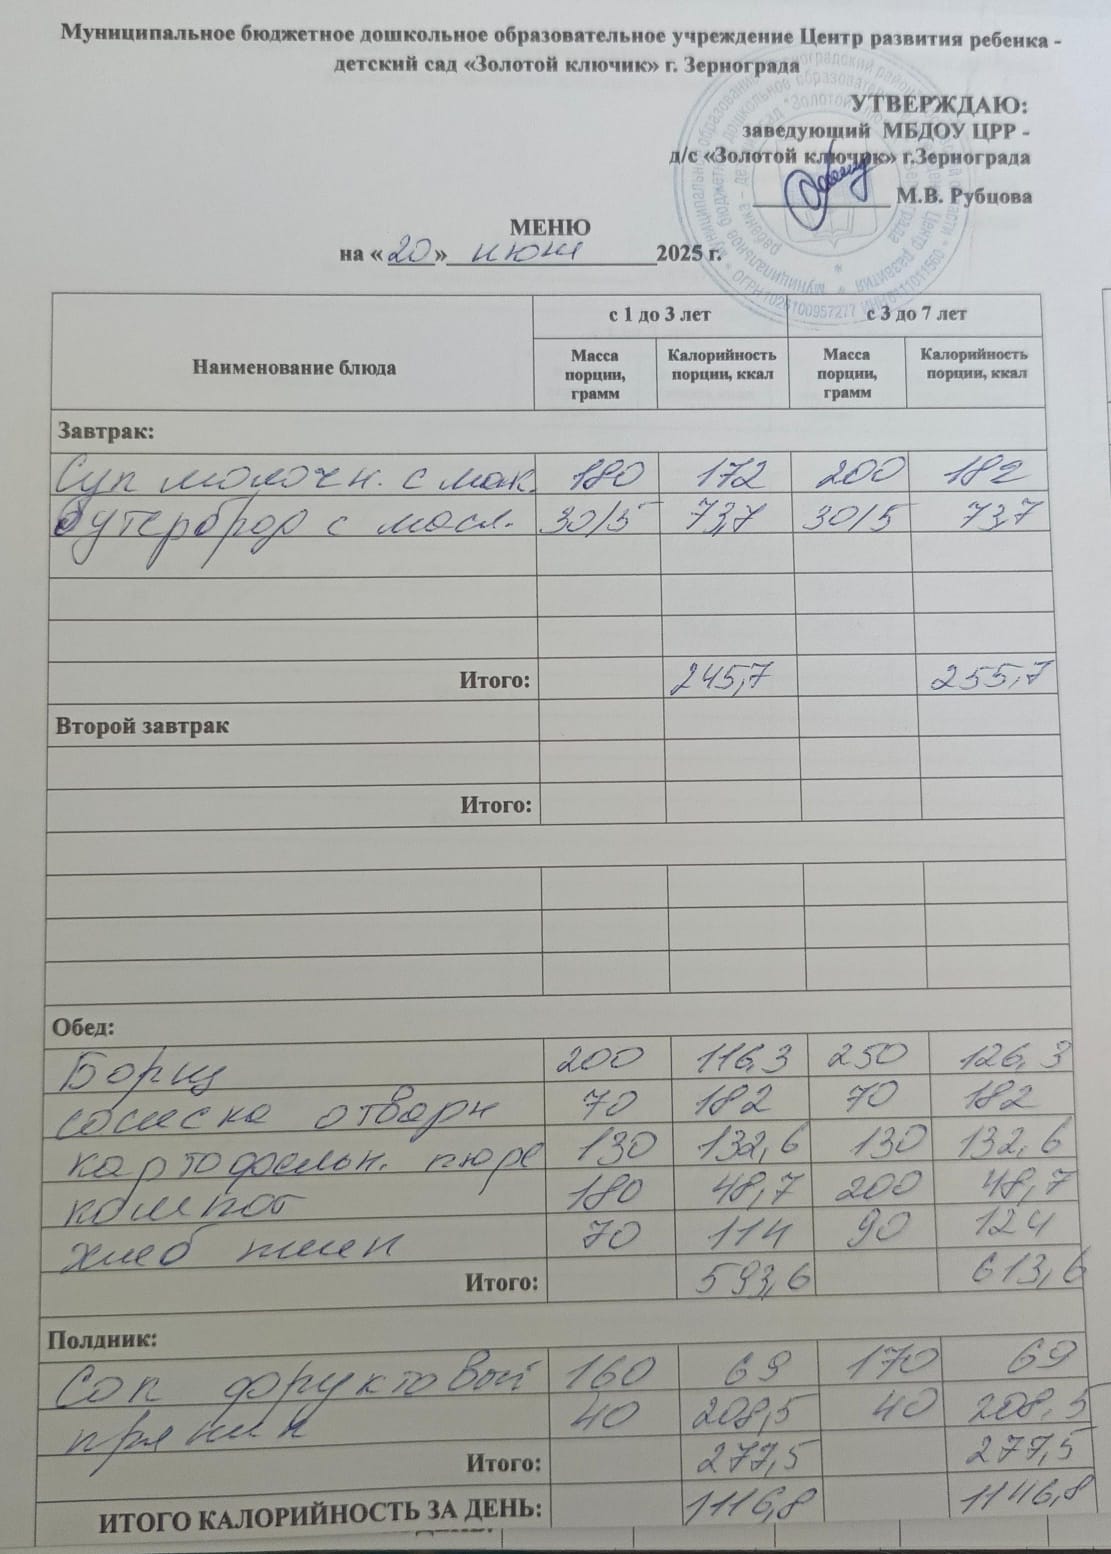 Муниципальное бюджетное дошкольное образовательное учреждение Центр развития ребенка -
детский сад «Золотой ключик» г. Зернограда
УТВЕРЖДАЮ:
заведующий МБДОУ ЦРР -
д/с «Золотой ключик» г.Зернограда
М.В. Рубцова
МЕНЮ
на «20» июня 2025 г.
Наименование блюда с 1 до 3 лет с 3 до 7 лет
Масса порции, грамм Калорийность порции, ккал Масса порции, грамм Калорийность порции, ккал
Завтрак:
Суп молочн. с мак. 180 172 200 182
бутерброд с масл. 30/5 73,7 30/5 73,7
Итого: 245,7 255,7
Второй завтрак
Итого:
Обед:
Борщ 200 116,3 250 126,3
сосиска отварн 70 182 70 182
картофельн. пюре 130 132,6 130 132,6
компот 180 48,7 200 48,7
хлеб пшен 70 114 90 124
Итого: 593,6 613,6
Полдник:
Сок фруктовый 160 69 170 69
пряник 40 208,5 40 208,5
Итого: 277,5 277,5
ИТОГО КАЛОРИЙНОСТЬ ЗА ДЕНЬ: 1116,8 1146,8